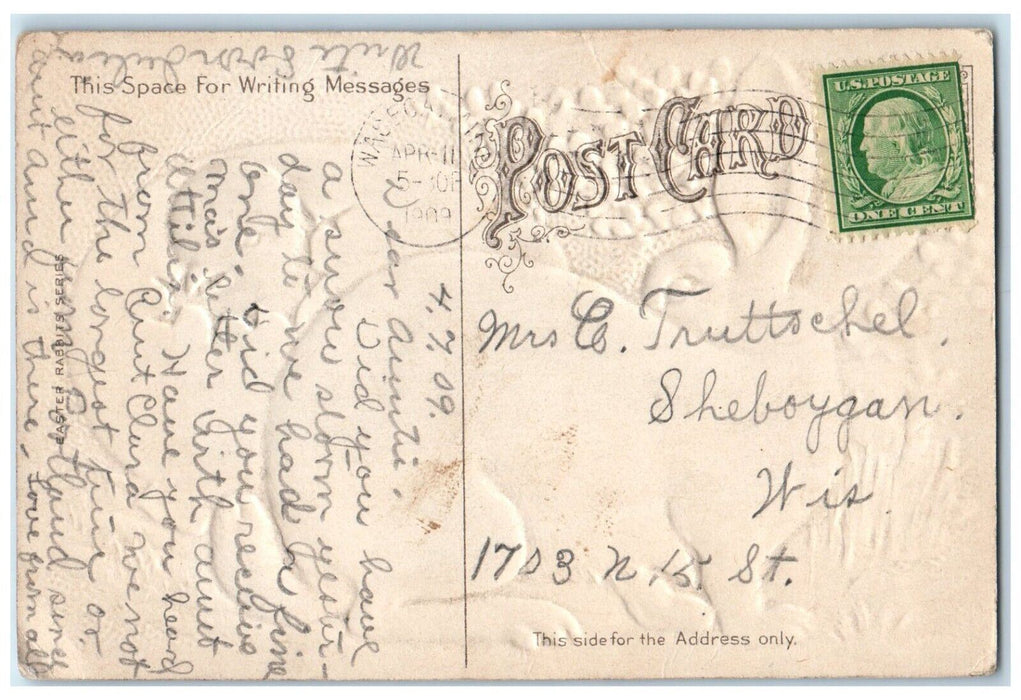 This Space For Writing Messages
POST CARD
U.S. POSTAGE
ONE CENT
APR 11
5-30P
1909
4.7.09.
Dear Auntie.
Did you have
a snow storm yester-
day we had
one. Did you receive
Ma's letter with aunt
Have you heard
from Aunt Clara we not
for the longest time or
either
aunt Amd is there. Love from all
Write soon
Mrs C. Truttschel.
Sheboygan.
Wis.
1703 N 15 St.
EASTER RABBITS SERIES
This side for the Address only.